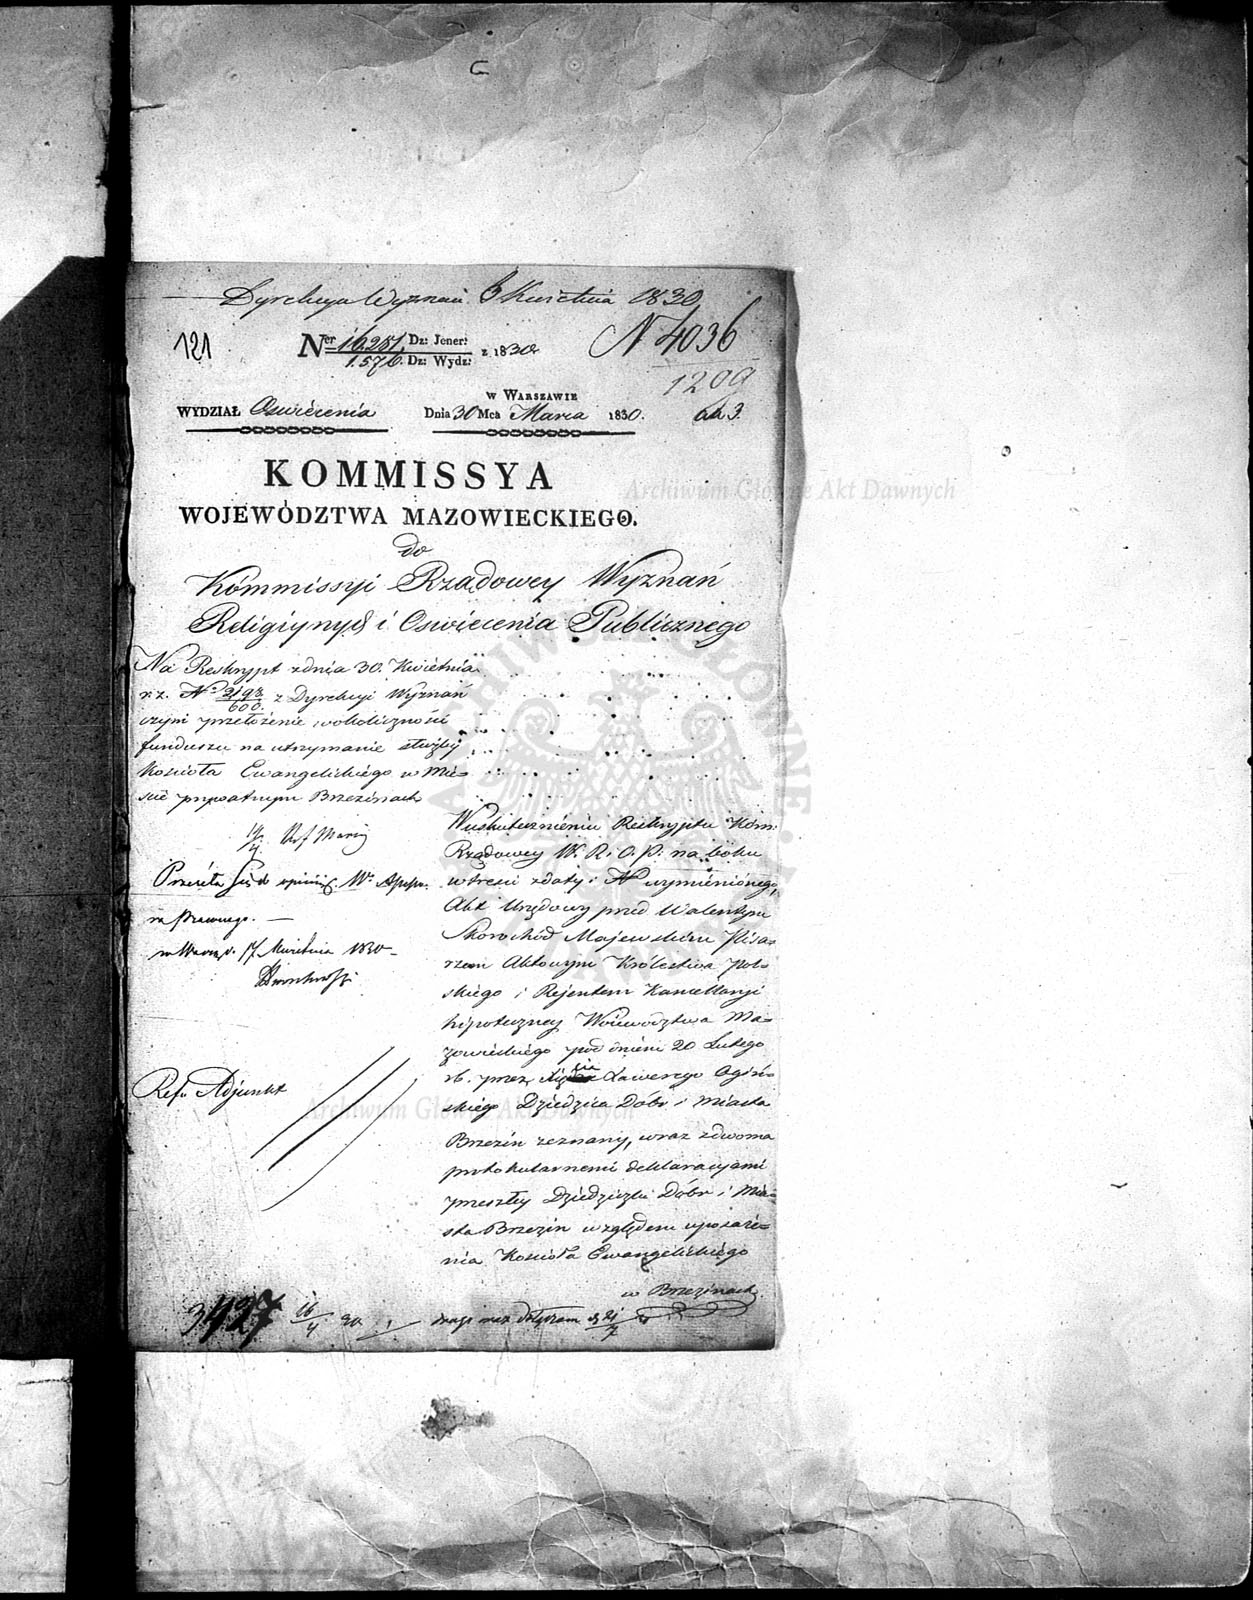 Dyrekcya Wyznań 6 Kwietnia 1830
121
Ner 16281. Dz: Jener:
1.576. Dz: Wydz: z 1830
N 4036
1209
W WARSZAWIE
WYDZIAŁ Oświecenia
Dnia 30 Mca Marca 1830.
KOMMISSYA
WOJEWÓDZTWA MAZOWIECKIEGO.
do
Kommissyi Rządowey Wyznań
Religiynych i Oświecenia Publicznego
Na Reskrypt z dnia 30. Kwietnia
r. z. No 2198/600. z Dyrekcyi Wyznań
czyni przełożenie w okoliczności
funduszu na utrzymanie służby
Kościoła Ewangelickiego w Mie-
ście prywatnym Brzezinach
Przesyła się do opinii
prawnego.
17 Kwietnia 1830
Ref. Adjunkt
W uskutecznieniu Reskryptu Kom:
Rządowey W. R. i O. P. na boku
w treści z daty i No wymienionego,
Akt Urzędowy przed Walentym
Skorochód Majewskim Pisa-
rzem Aktowym Królestwa Pol-
skiego i Rejentem Kancellaryi
hipoteczney Woiewództwa Ma-
zowieckiego pod dniem 20 Lutego
rb. przez Xięcia Xawerego Ogiń-
skiego Dziedzica Dóbr i Miasta
Brzezin zeznany, wraz z dwoma
protokularnemi deklaracyami
przeszłey Dziedziczki Dóbr i Mia-
sta Brzezin względem uposaże-
nia Kościoła Ewangelickiego
w Brzezinach
3427 16/4 30
Archiwum Główne Akt Dawnych
Archiwum Główne Akt Dawnych